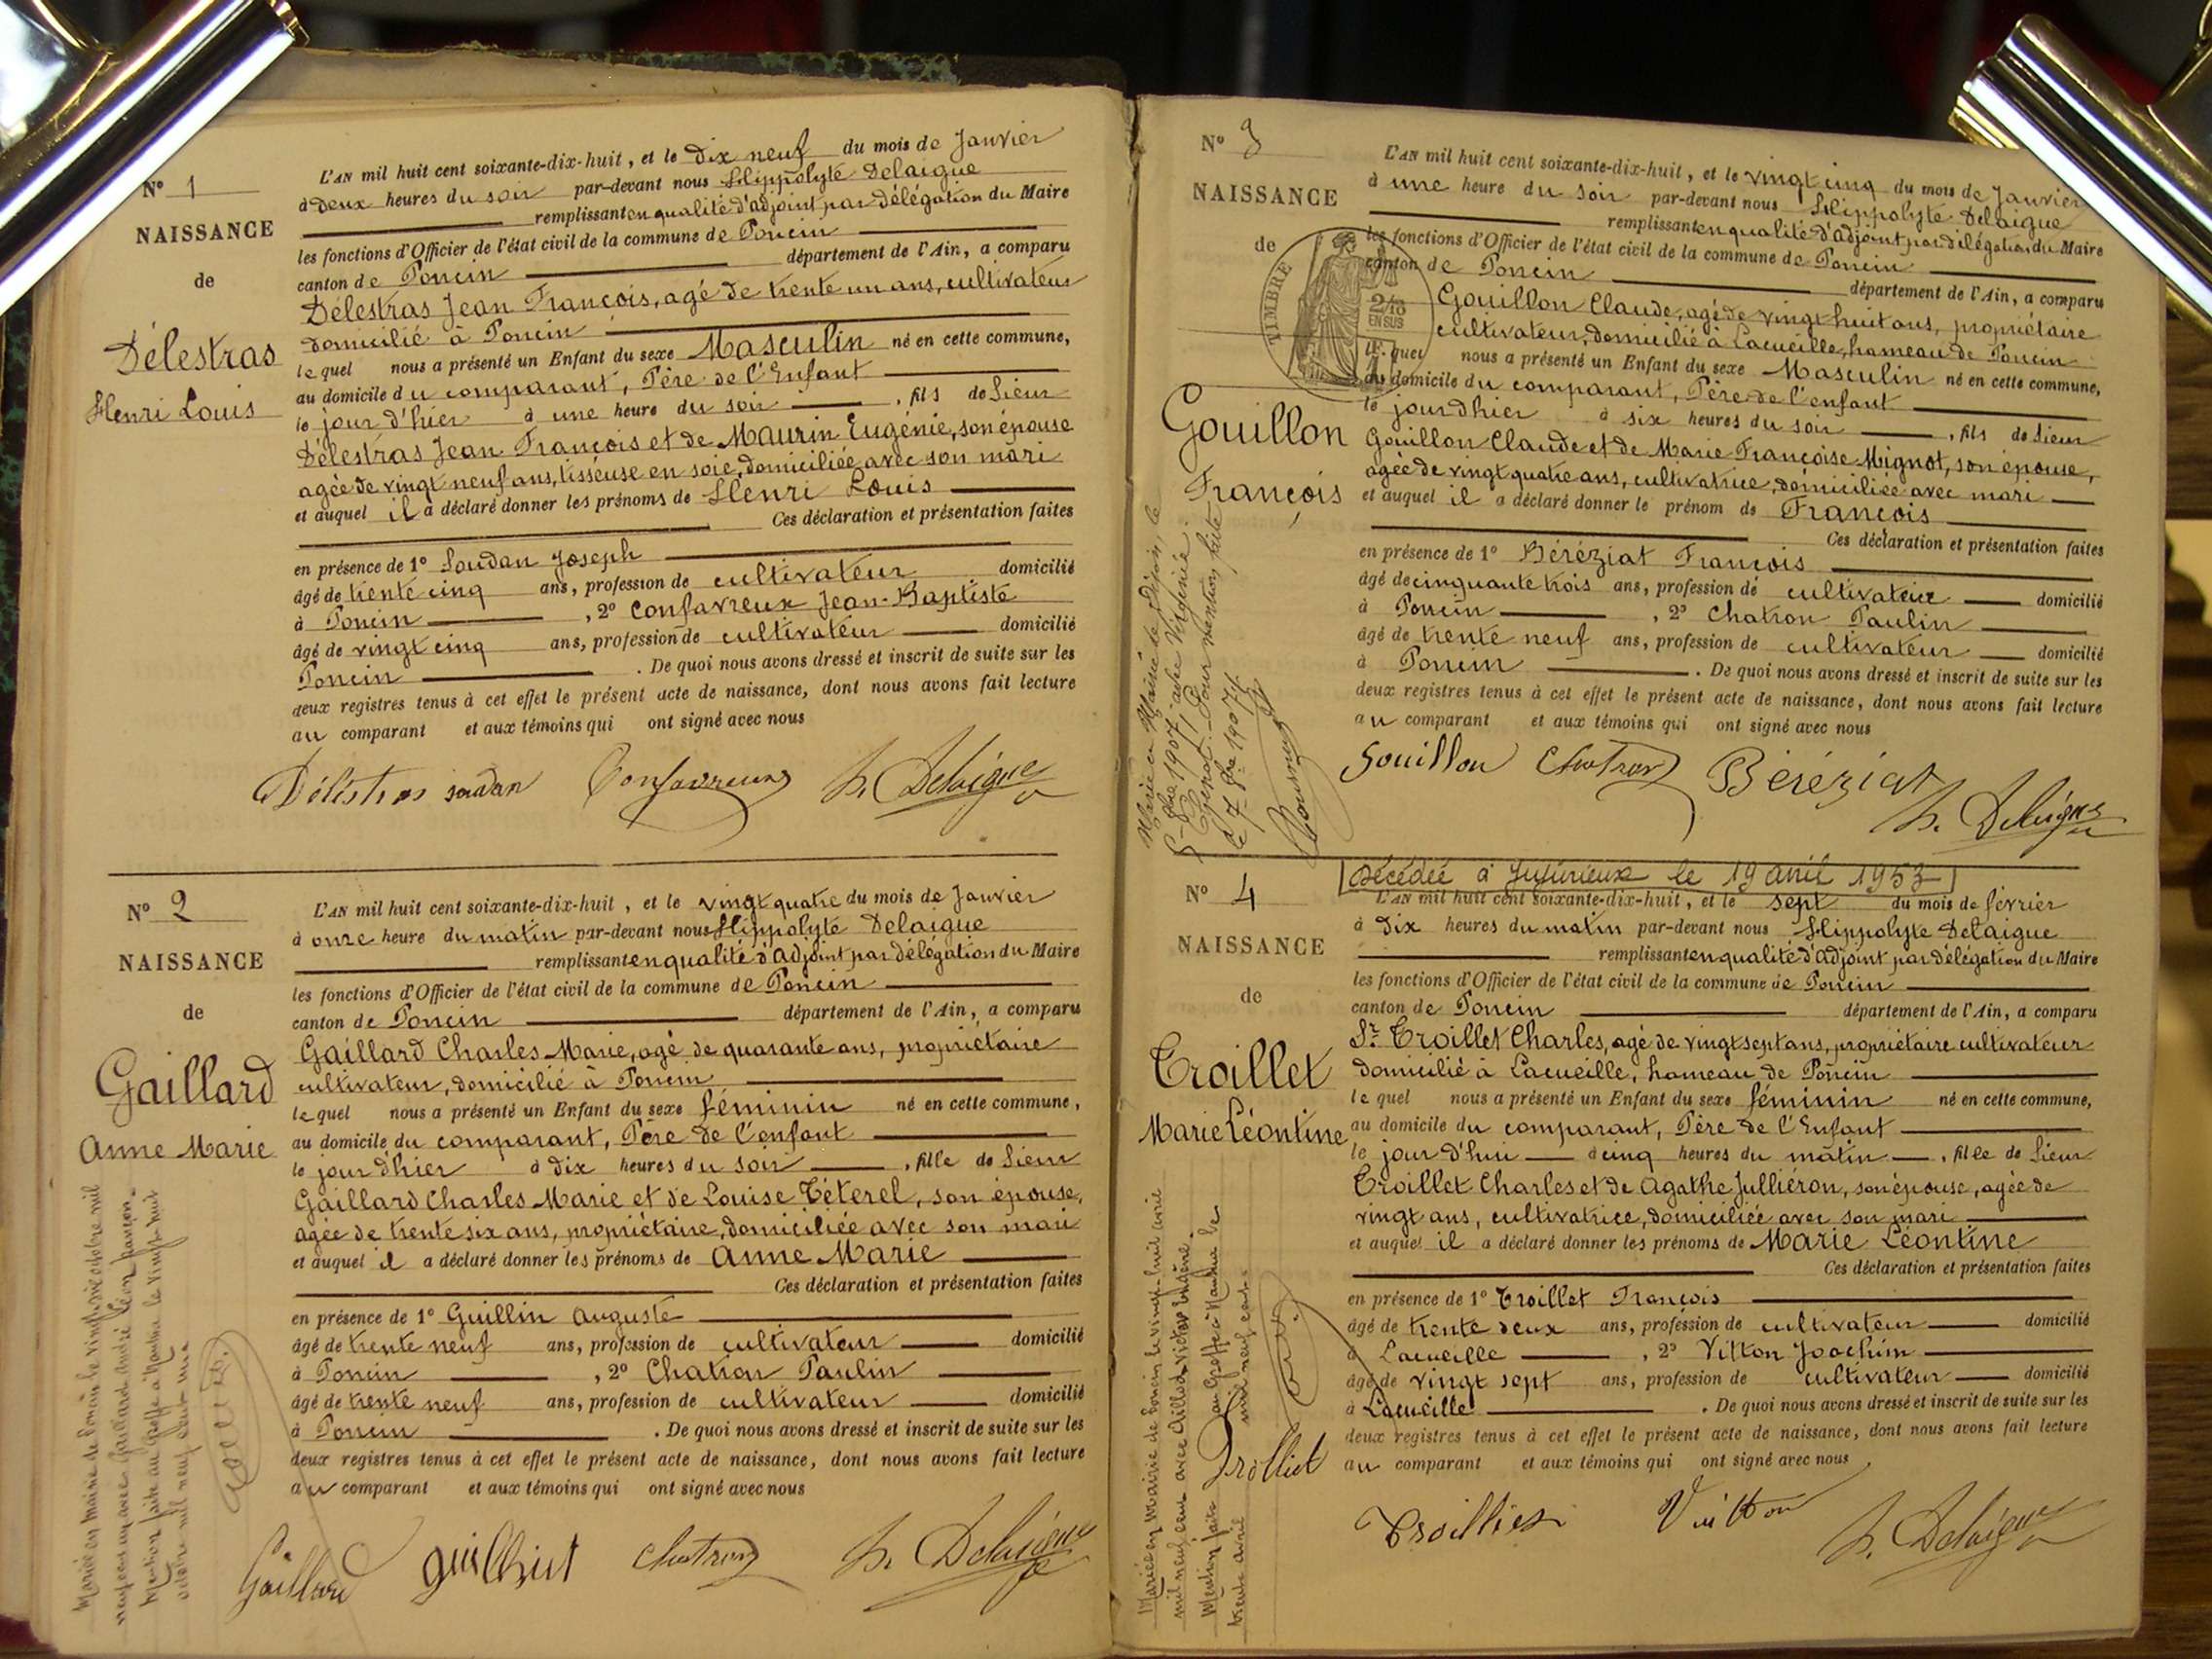 N° 1
NAISSANCE
de
Délestras
Henri Louis
L'AN mil huit cent soixante-dix-huit, et le Dix neuf du mois de Janvier
à deux heures du soir par-devant nous Hippolyte Delaigue
remplissant en qualité d'adjoint par délégation du Maire
les fonctions d'Officier de l'état civil de la commune de Poncin
canton de Poncin département de l'Ain, a comparu
Délestras Jean François, agé de trente un ans, cultivateur
domicilié à Poncin
lequel nous a présenté un Enfant du sexe Masculin né en cette commune,
au domicile du comparant, Père de l'Enfant
le jour d'hier à une heure du soir, fils de Sieur
Délestras Jean François et de Maurin Eugénie, son épouse
agée de vingt neuf ans, tisseuse en soie, domiciliée avec son mari
et auquel il a déclaré donner les prénoms de Henri Louis
Ces déclaration et présentation faites
en présence de 1° Soudan Joseph
âgé de trente cinq ans, profession de cultivateur domicilié
à Poncin, 2° Confavreux Jean-Baptiste
âgé de vingt cinq ans, profession de cultivateur domicilié
Poncin. De quoi nous avons dressé et inscrit de suite sur les
deux registres tenus à cet effet le présent acte de naissance, dont nous avons fait lecture
au comparant et aux témoins qui ont signé avec nous
Délestras Soudan Confavreux h. Delaigue
N° 2
NAISSANCE
de
Gaillard
Anne Marie
L'AN mil huit cent soixante-dix-huit, et le vingt quatre du mois de Janvier
à onze heure du matin par-devant nous Hippolyte Delaigue
remplissant en qualité d'adjoint par délégation du Maire
les fonctions d'Officier de l'état civil de la commune de Poncin
canton de Poncin département de l'Ain, a comparu
Gaillard Charles Marie, agé de quarante ans, propriétaire
cultivateur, domicilié à Poncin
lequel nous a présenté un Enfant du sexe féminin né en cette commune,
au domicile du comparant, Père de l'enfant
le jour d'hier à dix heures du soir, fille de Sieur
Gaillard Charles Marie et de Louise Téterel, son épouse,
agée de trente six ans, propriétaire, domiciliée avec son mari
et auquel il a déclaré donner les prénoms de Anne Marie
Ces déclaration et présentation faites
en présence de 1° Guillin Auguste
âgé de trente neuf ans, profession de cultivateur domicilié
à Poncin, 2° Chatron Paulin
âgé de trente neuf ans, profession de cultivateur domicilié
à Poncin. De quoi nous avons dressé et inscrit de suite sur les
deux registres tenus à cet effet le présent acte de naissance, dont nous avons fait lecture
au comparant et aux témoins qui ont signé avec nous
Gaillard Chatron h. Delaigue
Mariée en mairie de Poncin le vingt six octobre mil
neuf cent un avec Gaillard André Léon françois.
Mention faite au greffe à Nantua le vingt huit
octobre mil neuf cent un
N° 3
NAISSANCE
de
TIMBRE
2/10
EN SUS
Gouillon
François
L'AN mil huit cent soixante-dix-huit, et le vingt cinq du mois de Janvier
à une heure du soir par-devant nous Hippolyte Delaigue
remplissant en qualité d'adjoint par délégation du Maire
les fonctions d'Officier de l'état civil de la commune de Poncin
canton de Poncin département de l'Ain, a comparu
Gouillon Claude, agé de vingt huit ans, propriétaire
cultivateur, domicilié à Lacueille, hameau de Poncin
lequel nous a présenté un Enfant du sexe Masculin né en cette commune,
au domicile du comparant, Père de l'enfant
le jour d'hier à six heures du soir, fils de Sieur
Gouillon Claude et de Marie Françoise Mignot, son épouse,
agée de vingt quatre ans, cultivatrice, domiciliée avec mari
et auquel il a déclaré donner le prénom de François
Ces déclaration et présentation faites
en présence de 1° Béréziat François
âgé de cinquante trois ans, profession de cultivateur domicilié
à Poncin, 2° Chatron Paulin
âgé de trente neuf ans, profession de cultivateur domicilié
à Poncin. De quoi nous avons dressé et inscrit de suite sur les
deux registres tenus à cet effet le présent acte de naissance, dont nous avons fait lecture
au comparant et aux témoins qui ont signé avec nous
Gouillon Chatron Béréziat
h. Delaigue
Marié en Mairie de Dijon, le
1907 avec Virginie
Pour mention faite
le 7 8bre 1907
Décédée à Jujurieux le 19 avril 1953
N° 4
NAISSANCE
de
Troillet
Marie Léontine
L'AN mil huit cent soixante-dix-huit, et le sept du mois de février
à dix heures du matin par-devant nous Hippolyte Delaigue
remplissant en qualité d'adjoint par délégation du Maire
les fonctions d'Officier de l'état civil de la commune de Poncin
canton de Poncin département de l'Ain, a comparu
Sr Troillet Charles, agé de vingt sept ans, propriétaire cultivateur
domicilié à Lacueille, hameau de Poncin
lequel nous a présenté un Enfant du sexe féminin né en cette commune,
au domicile du comparant, Père de l'Enfant
le jour d'hui à cinq heures du matin, fille de Sieur
Troillet Charles et de Agathe Julliéron, son épouse, agée de
vingt ans, cultivatrice, domiciliée avec son mari
et auquel il a déclaré donner les prénoms de Marie Léontine
Ces déclaration et présentation faites
en présence de 1° Troillet François
âgé de trente deux ans, profession de cultivateur domicilié
à Lacueille, 2° Vitton Joachim
âgé de vingt sept ans, profession de cultivateur domicilié
à Lacueille. De quoi nous avons dressé et inscrit de suite sur les
deux registres tenus à cet effet le présent acte de naissance, dont nous avons fait lecture
au comparant et aux témoins qui ont signé avec nous
Vitton h. Delaigue
Mariée en mairie de Poncin le vingt-huit avril
mil neuf cent avec Victor Eugène
Mention faite au Greffe à Nantua le
trente avril mil neuf cent